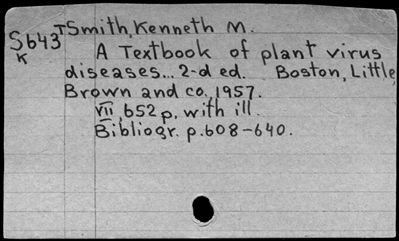 Smith, Kenneth M.
S643
K
A Textbook of plant virus
diseases... 2-d ed. Boston, Little,
Brown and co., 1957.
VII, 652 p. with ill.
Bibliogr. p. 608-640.